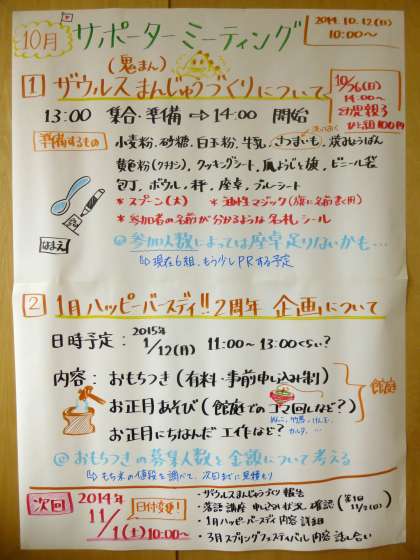 10月 サポーターミーティング
2014.10.12(日)
10:00〜
(鬼まん)
1 ザウルスまんじゅうづくりについて
10/26(日)
14:00〜
幼児親子
ひと組100円
13:00 集合・準備 ⇨ 14:00 開始
準備するもの
小麦粉、砂糖、白玉粉、牛乳、さつまいも、
黄色粉(クチナシ)、クッキングシート、ビニール袋
包丁、ボウル、杆、座卓、ブルーシート
*スプーン(大) *油性マジック(旗に名前表用)
*参加者の名前が分かるような名札シール
なまえ
@参加人数によっては座卓足りないかも…
⇨現在6組、もう少しPRする予定
2 1月ハッピーバースディ!!2周年 企画について
日時予定: 2015年
1/12(月) 11:00〜13:00くらい?
内容: おもちつき(有料・事前申し込み制)
お正月あそび(館庭でのコマ回しなど?)
めんこ、竹馬、けん玉、
カルタ、…
お正月にちなんだ工作など?
館庭
@おもちつきの募集人数と金額について考える
⇨もち米の値段を調べて、次回までに見積もり
次回 2014年
11/1(土) 10:00〜
日付変更!
・ザウルスまんじゅうづくり 報告
・落語講座 申し込み状況 確認(第1回 11/2(日))
・1月ハッピーバースディ 内容 詳細
・3月スプリングフェスティバル 内容 話し合い